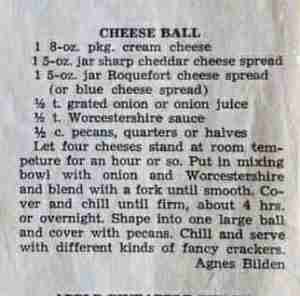 CHEESE BALL
1 8-oz. pkg. cream cheese
1 5-oz. jar sharp cheddar cheese spread
1 5-oz. jar Roquefort cheese spread
(or blue cheese spread)
½ t. grated onion or onion juice
½ t. Worcestershire sauce
½ c. pecans, quarters or halves
Let four cheeses stand at room tem-
peture for an hour or so. Put in mixing
bowl with onion and Worcestershire
and blend with a fork until smooth. Co-
ver and chill until firm, about 4 hrs.
or overnight. Shape into one large ball
and cover with pecans. Chill and serve
with different kinds of fancy crackers.
Agnes Bilden